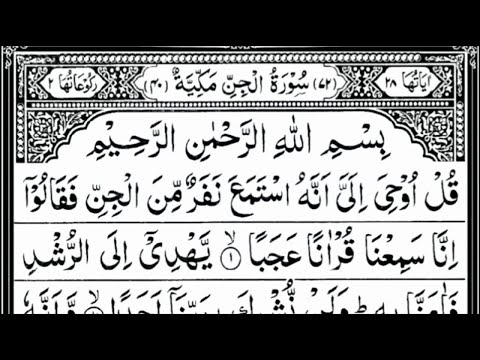 اٰيَاتُهَا ٢٨ (٧٢) سُوْرَةُ الْجِنِّ مَكِّيَّةٌ (٤٠) رُكُوْعَاتُهَا ٢
بِسْمِ اللهِ الرَّحْمٰنِ الرَّحِيْمِ
قُلْ اُوْحِيَ اِلَيَّ اَنَّهُ اسْتَمَعَ نَفَرٌ مِّنَ الْجِنِّ فَقَالُوْٓا
اِنَّا سَمِعْنَا قُرْاٰنًا عَجَبًا ۙ ١ يَّهْدِيْٓ اِلَى الرُّشْدِ
فَاٰمَنَّا بِهٖ ؕ وَلَنْ نُّشْرِكَ بِرَبِّنَآ اَحَدًا ۙ وَّاَنَّهٗ